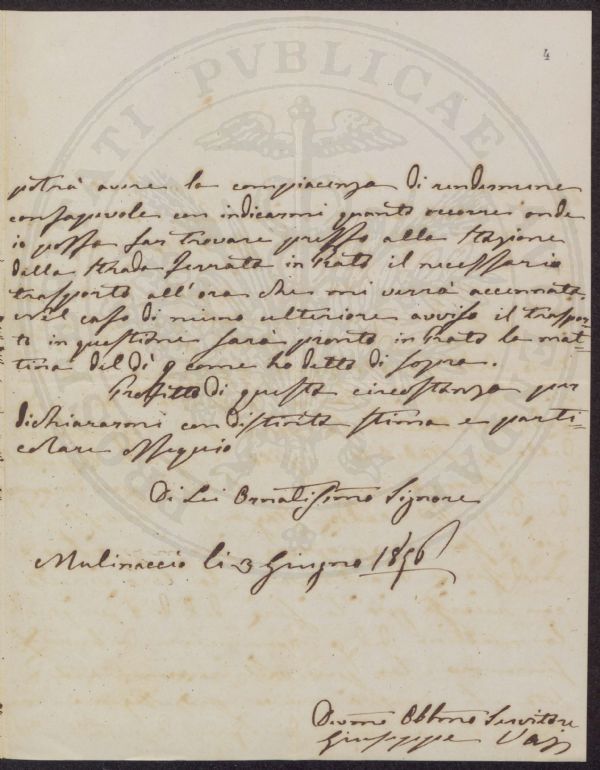 4
potrà avere la compiacenza di rendermene
consapevole con indicarmi quanto occorre onde
io possa far trovare presso alla Stazione
della Strada Ferrata in Prato il necessario
trasporto all'ora che mi verrà accennata.
Nel caso di niuno ulteriore avviso il traspor-
to in questione sarà pronto in Prato la mat-
tina del dì 9 come ho detto di sopra.
Profitto di questa circostanza per
dichiararmi con distinta stima e parti-
colare ossequio
Di Lei Ornatissimo Signore
Mulinaccio li 3 Giugno 1856
Devmo Obblmo Servitore
Giuseppe Vaj